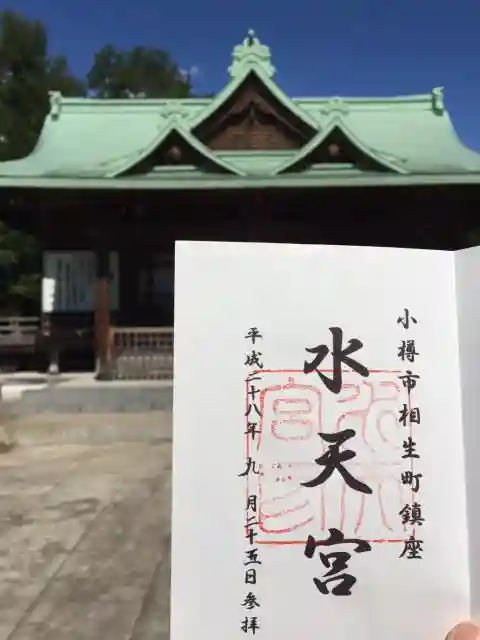 小樽市相生町鎮座
水天宮
平成二十八年九月二十五日参拝